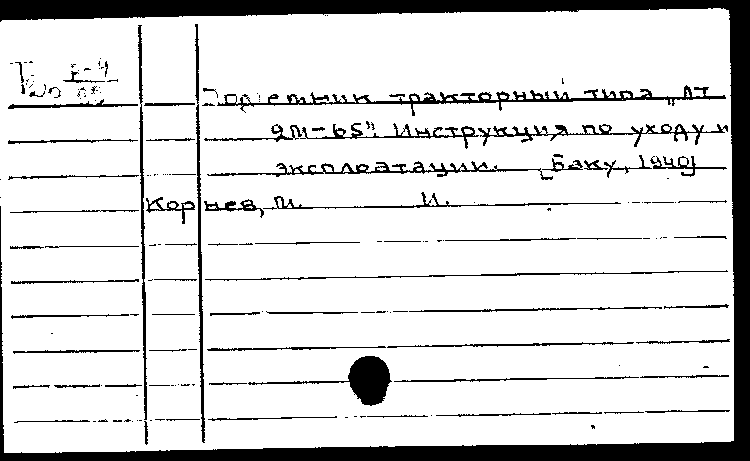 Подъемник тракторный типа „ПТ
2М-65“. Инструкция по уходу и
эксплоатации. [Баку, 1940]
Корнев, М. И.